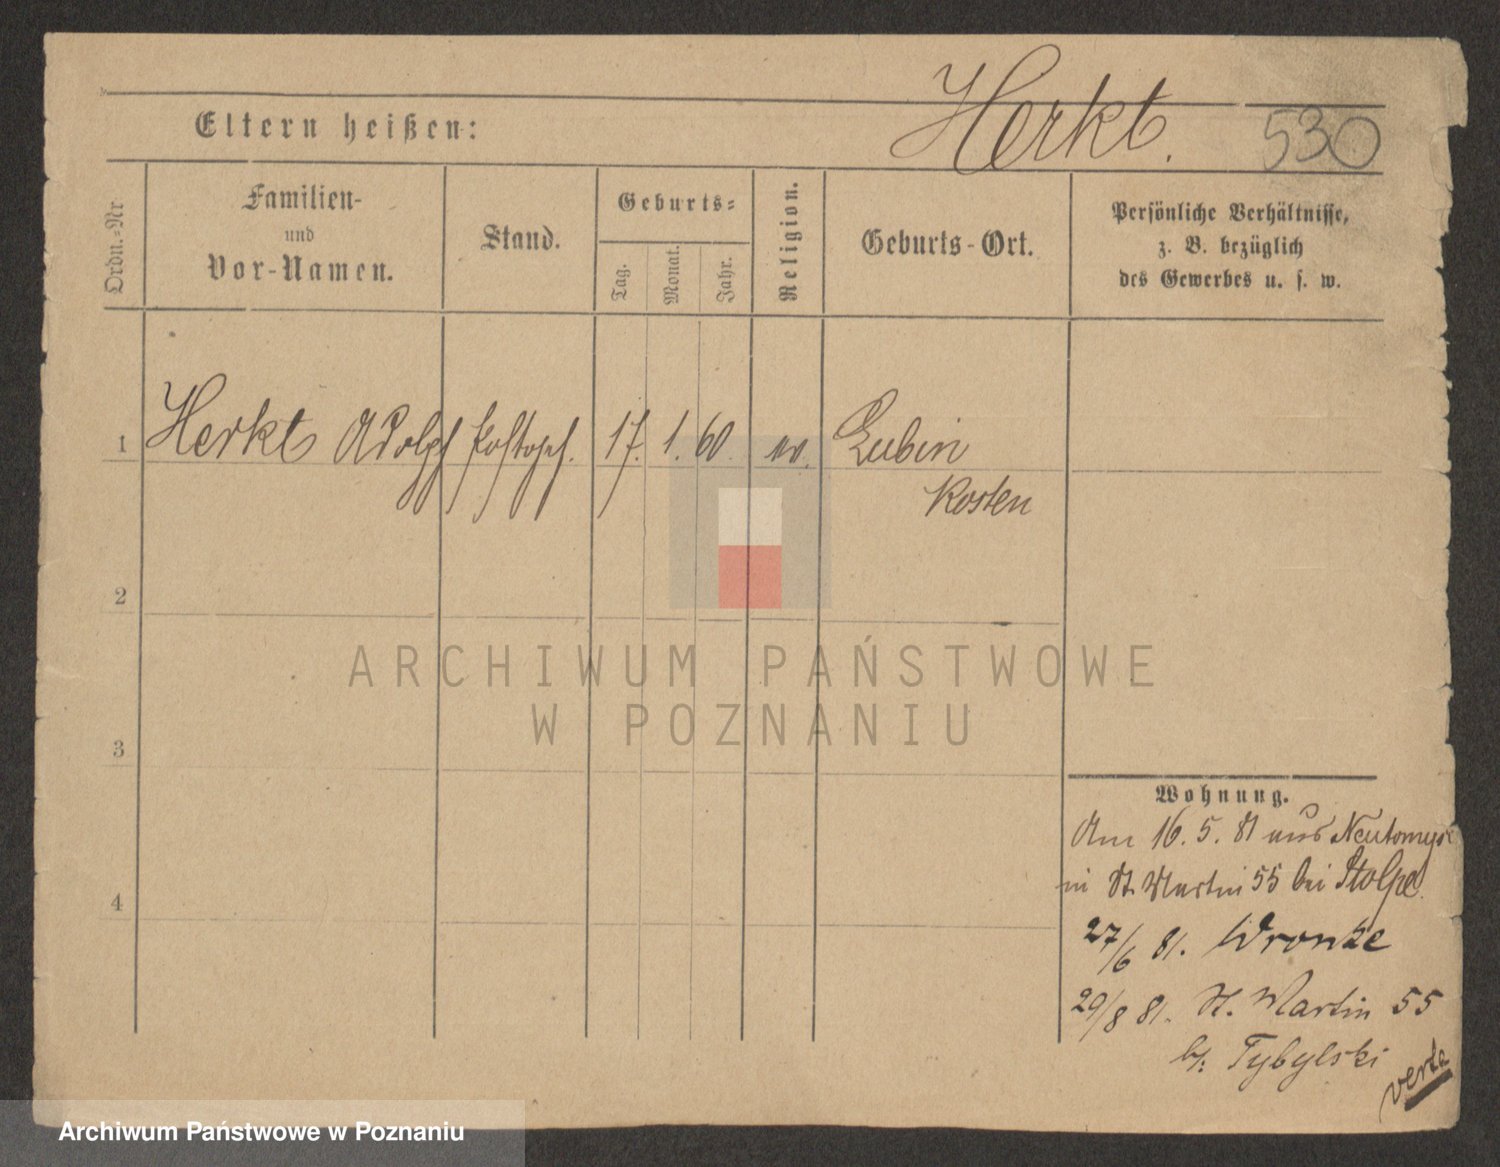 Herkt.
530
Eltern heißen:
Ordn.-Nr
Familien-
und
Vor-Namen.
Stand.
Geburts-
Tag.
Monat.
Jahr.
Religion.
Geburts-Ort.
Persönliche Verhältnisse,
z. B. bezüglich
des Gewerbes u. s. w.
1 Herkt Adolf Postgeh. 17. 1. 60. ev. Lubin
Kosten
2
ARCHIWUM PAŃSTWOWE
W POZNANIU
3
4
Wohnung.
Am 16. 5. 81 aus Neutomysl
in St. Martin 55 bei Stolpe.
27/6 81. Wronke
29/8 81. St. Martin 55
b/: Tybylski
verte
Archiwum Państwowe w Poznaniu